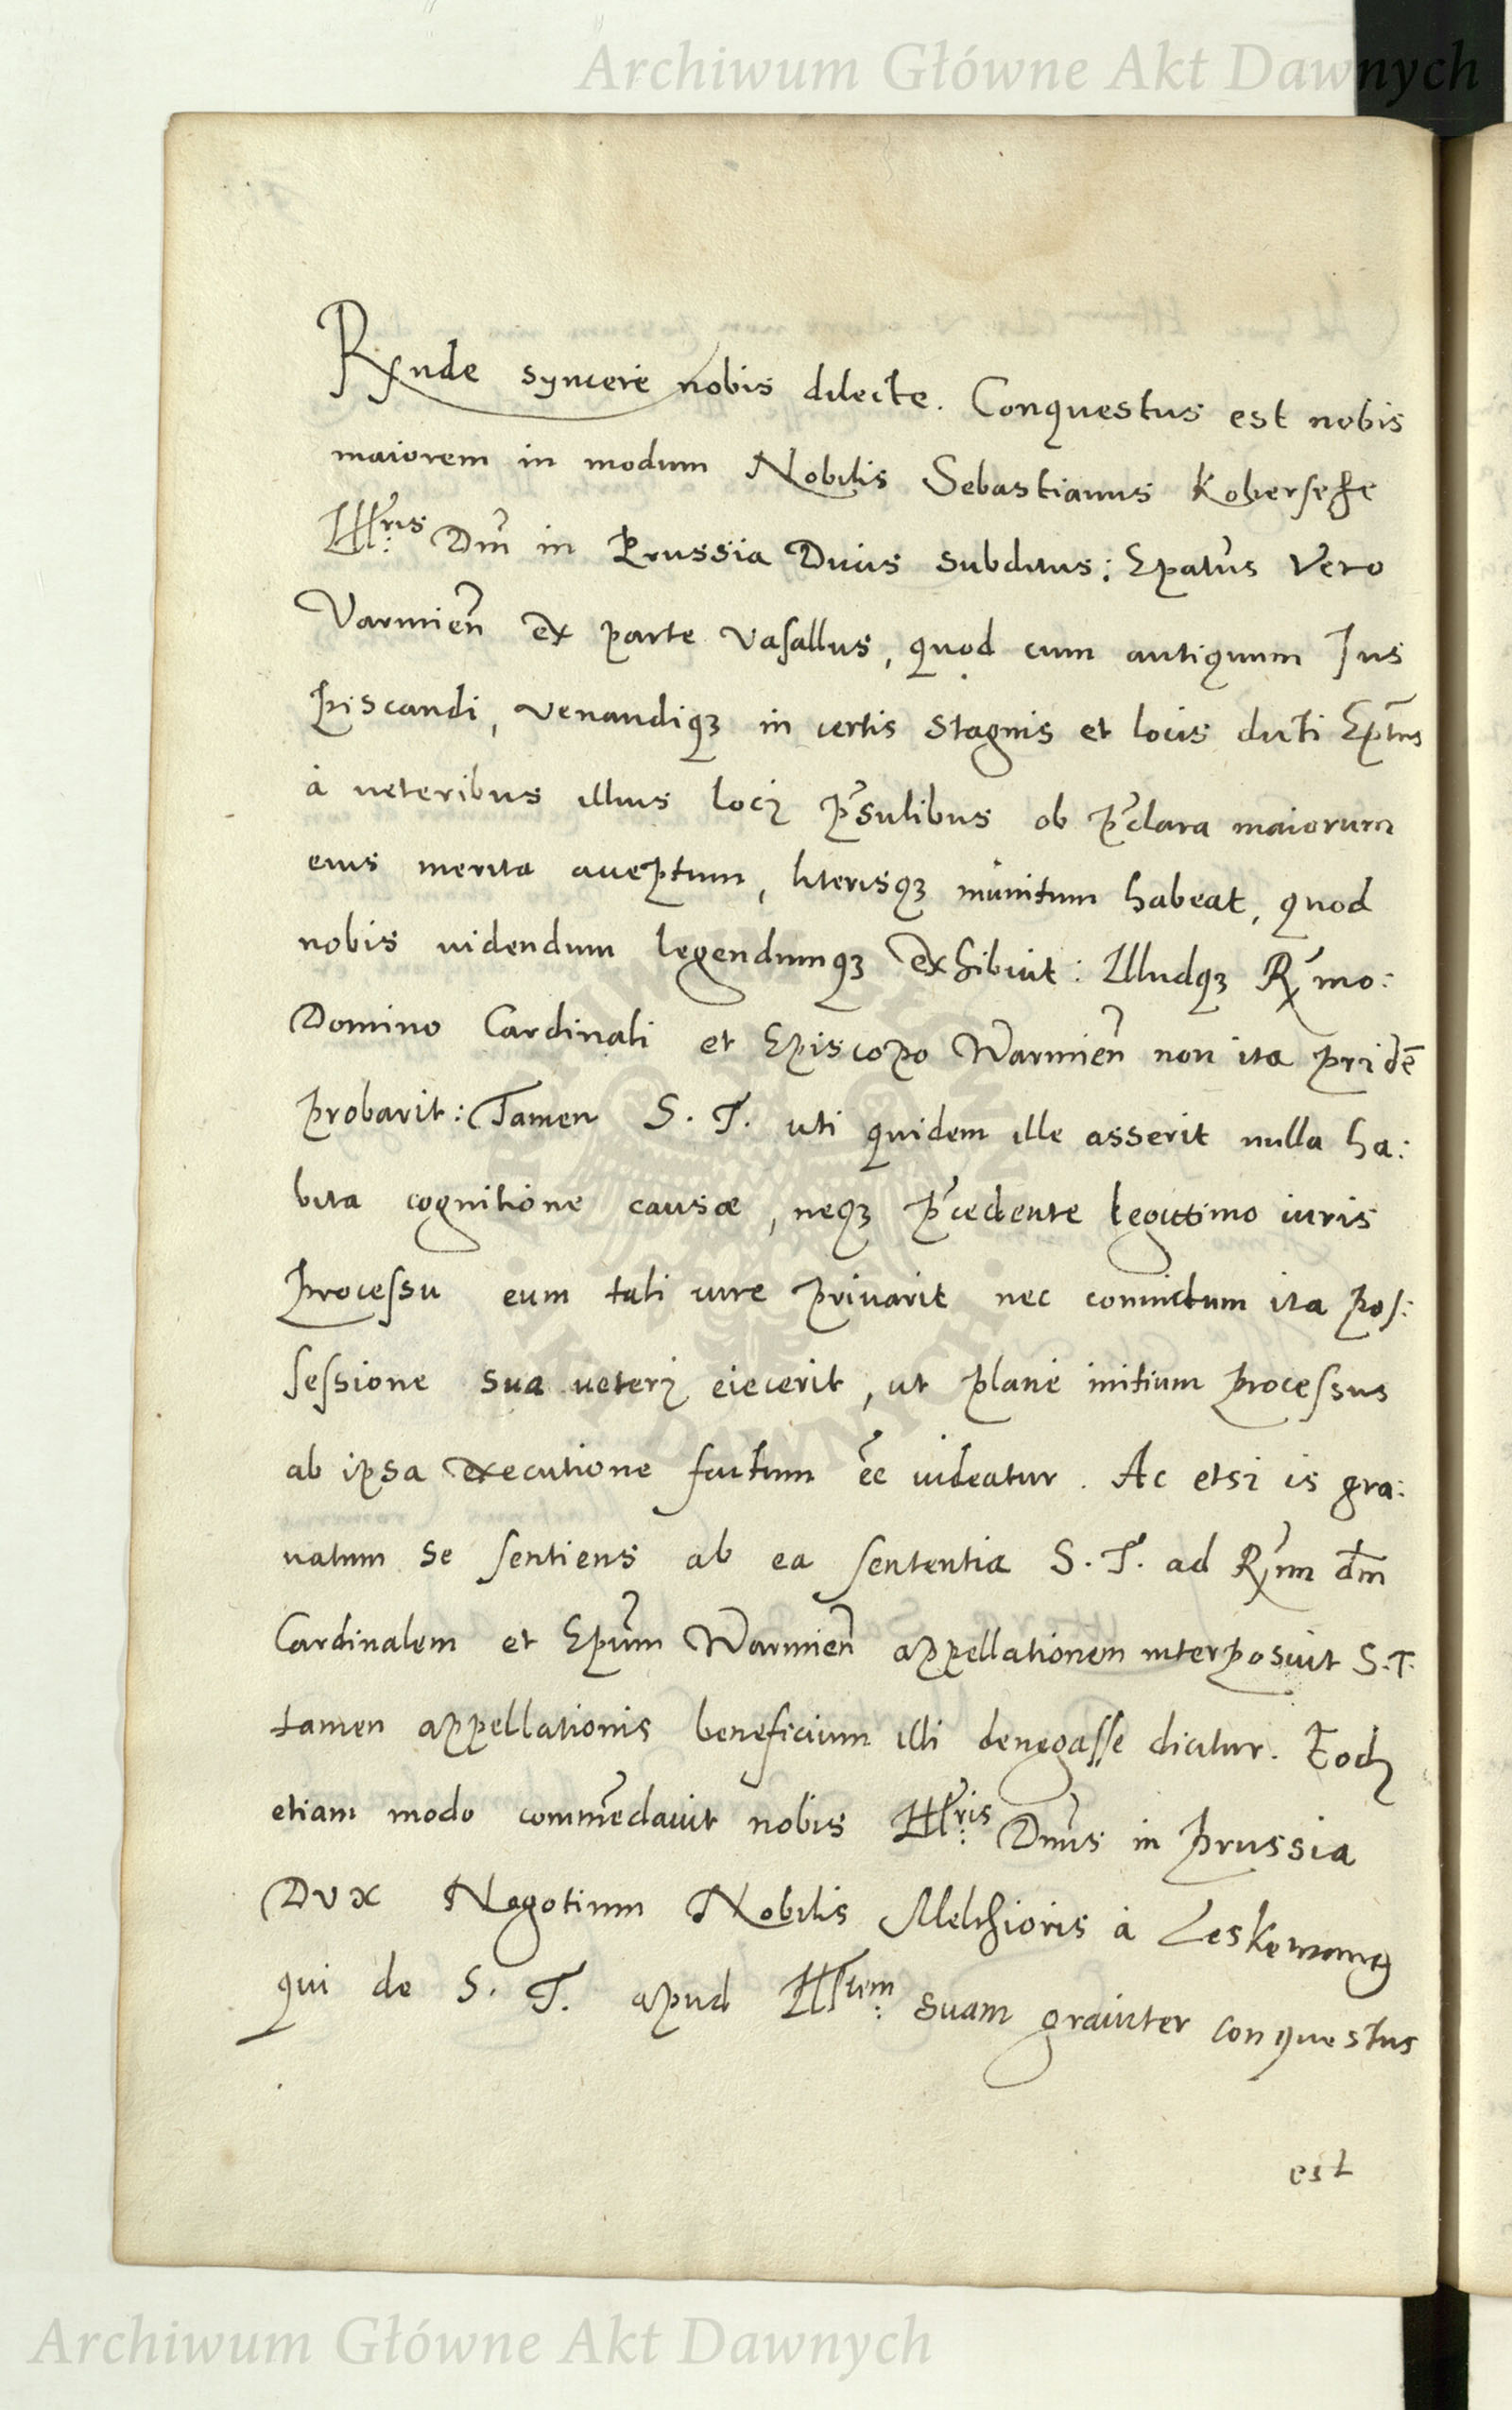 Archiwum Główne Akt Dawnych
Rx̃nde syncere nobis dilecte. Conquestus est nobis
maiorem in modum Nobilis Sebastianus Koberseħe
Ill:ris Dni in Prussia Ducis subditus: Epatus Vero
Varmien̄ ex parte Vasallus, quod cum antiquum Jus
piscandi, venandiqȝ in certis stagnis et locis dicti Epٰtus
à veteribus illius loci p̄sulibus ob p̄clara maiorum
eius merita acceptum, literisqȝ munitum habeat, quod
nobis videndum legendumqȝ exhibuit: Illudqȝ Rx̃mo:
Domino Cardinali et Episcopo Warmien̄ non ita pridē
probarit: Tamen S. T. uti quidem ille asserit nulla ha:
bita cognitione causæ, neqȝ p̄cedente legittimo iuris
processu eum tali iure privarit nec convictum ita pos:
sessione sua veteri eiecerit, ut plane initium processus
ab ipsa executione factum ēe videatur. Ac etsi is gra:
vatum se sentiens ab ea sententia S. T. ad Rx̃m dm̄
Cardinalem et Epūm Warmien̄ appellationem interposuit S.T.
tamen appellationis beneficium illi denegasse dicitur. Eodȝ
etiam modo commēdavit nobis Ill:ris Dnūs in Prussia
Dux Negotium Nobilis Melchioris à Leskewang
qui de S. T. apud Ill:tem suam graviter conquestus
est
Archiwum Główne Akt Dawnych